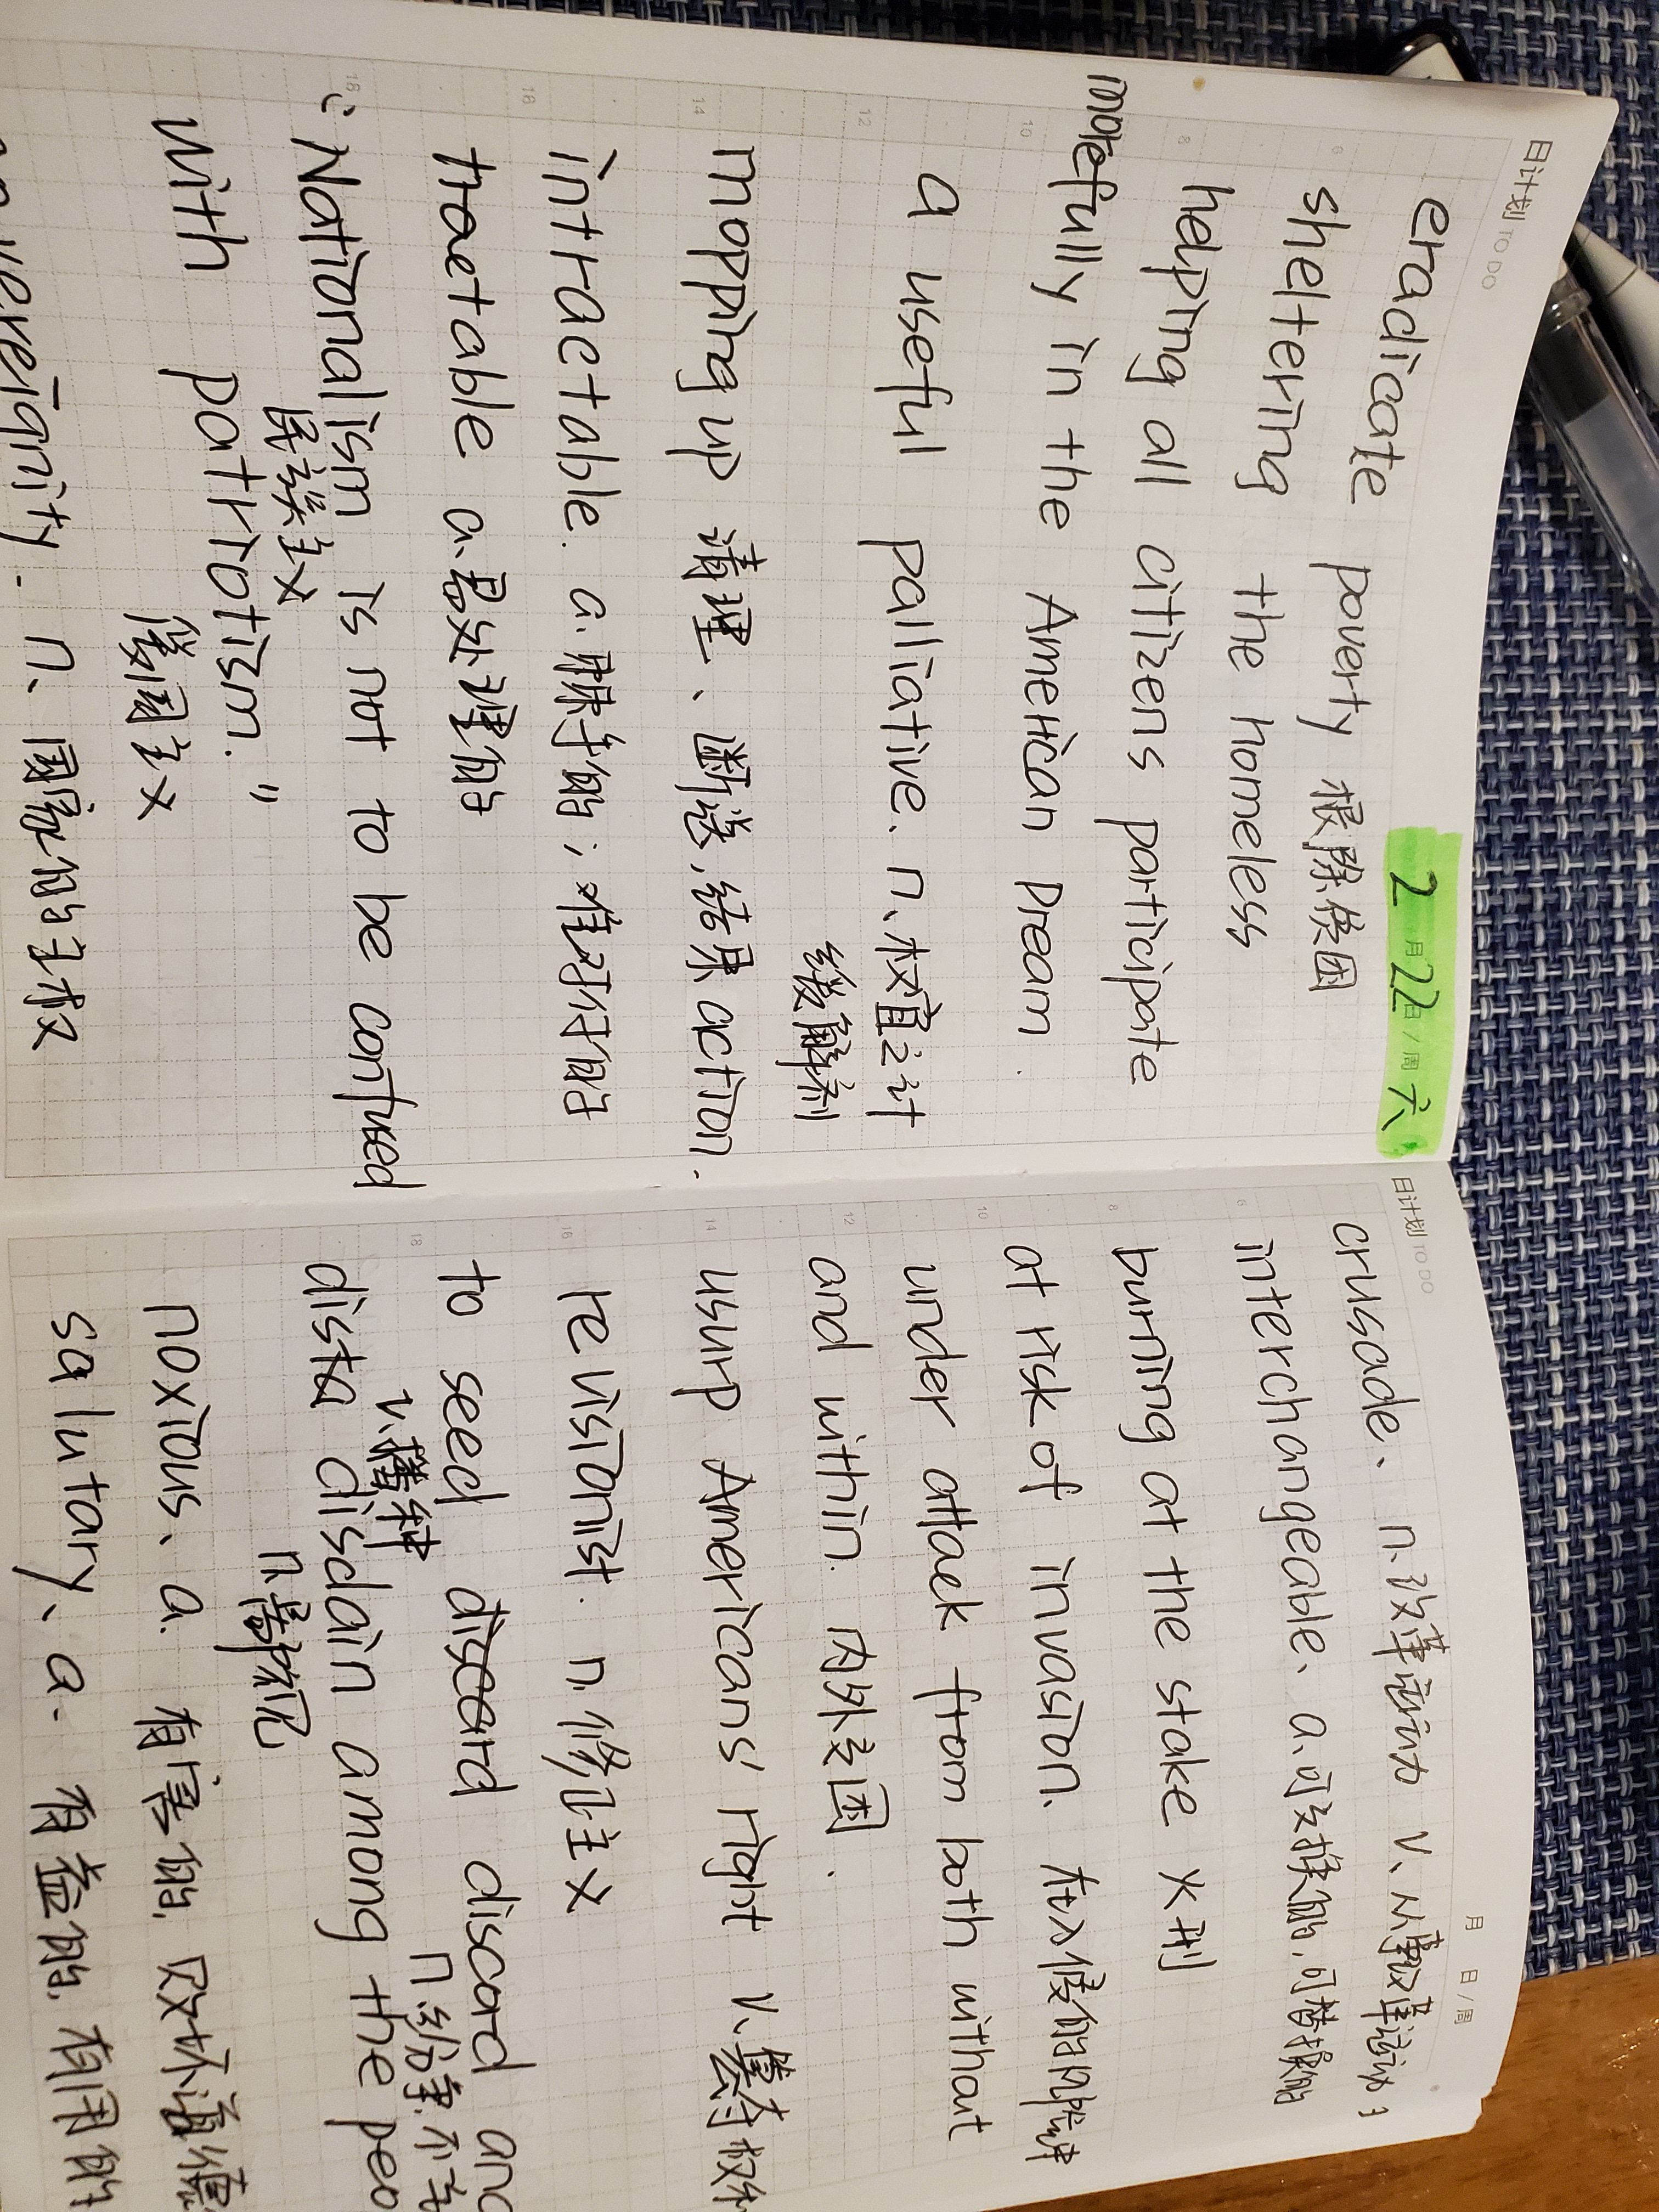 日计划 TO DO
2月22日/周六
eradicate poverty 根除贫困
sheltering the homeless
helping all citizens participate
more fully in the American Dream.
a useful palliative、n、权宜之计
缓解剂
mopping up 清理、断送,结果 action.
intractable. a.棘手的；难对付的
tractable a.易处理的
"Nationalism is not to be confused
民族主义
with patriotism."
爱国主义
sovereignity. n、国家的主权
日计划 TO DO
月 日/周
crusade、n.改革运动 v、从事改革运动；
interchangeable、a.可交换的,可替换的
burning at the stake 火刑
at risk of invasion、在入侵的
under attack from both without
and within. 内外交困.
usurp Americans' right v.篡夺权
revisionist. n.修正主义
to seed discard and
v.播种 n纷争.不
disdain among the peo
n.鄙视
noxious、a. 有害的,败坏道德
salutary、a. 有益的,有用的